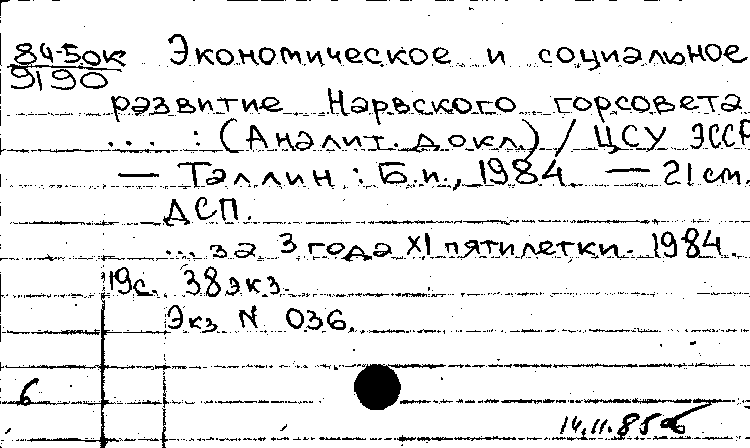 84-5ок Экономическое и социальное
9190
развитие Нарвского горсовета
... : (Аналит. докл.) / ЦСУ ЭССР
— Таллин : Б.и., 1984. — 21 см.
ДСП.
... за 3 года XI пятилетки. 1984.
19с. 38экз.
Экз N 036.
6
14.11.85